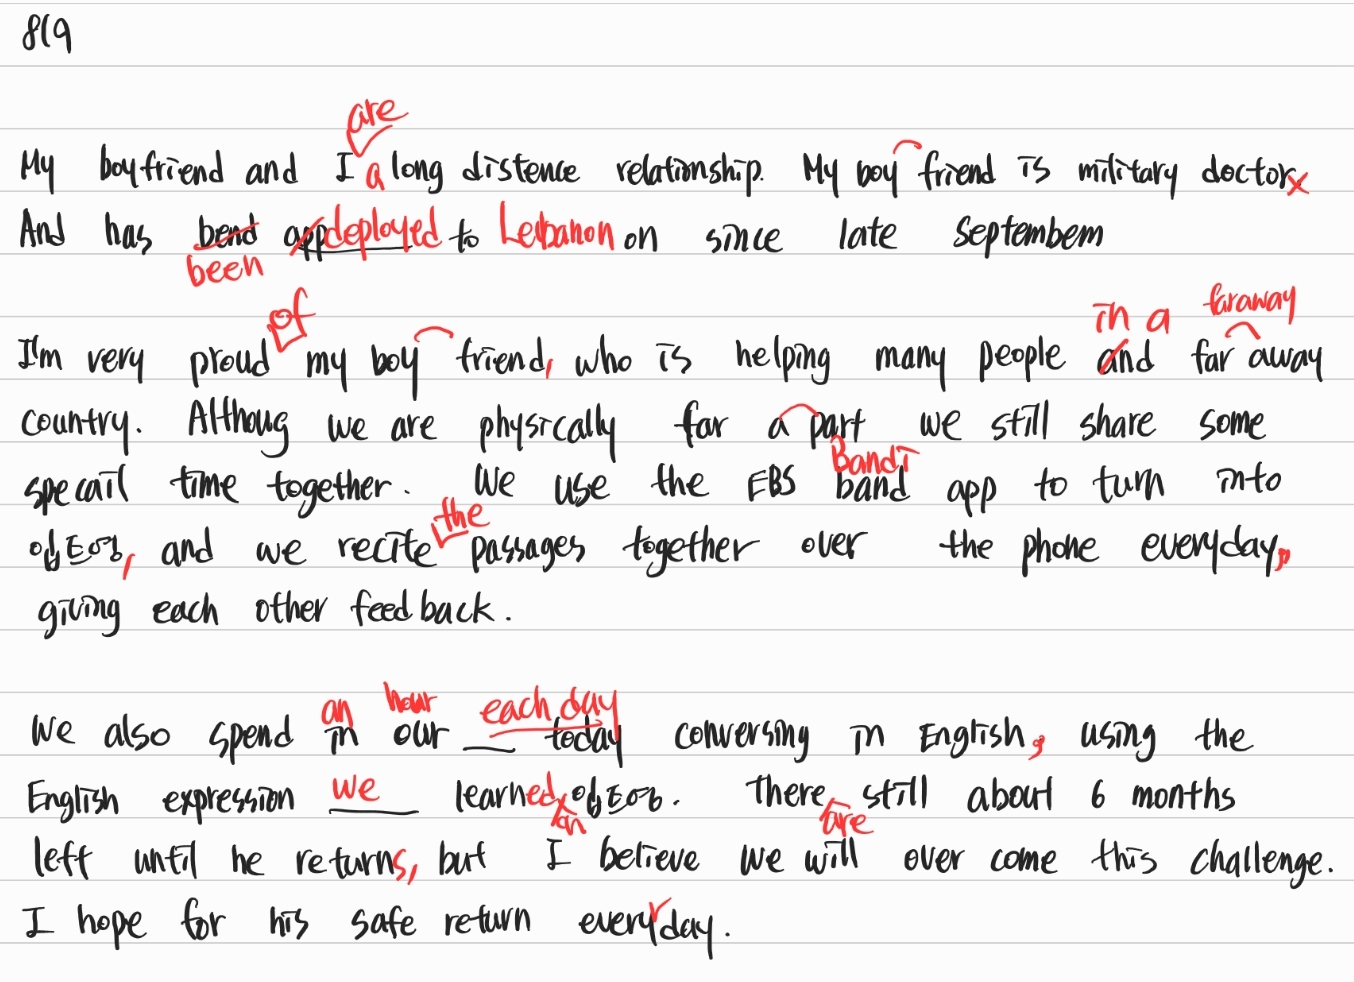 8(9
are
My boyfriend and I a long distence relationship. My boy friend is military doctor x
And has bend app deployed to Lebanon on since late septembem
been
of in a faraway
I'm very proud my boy friend, who is helping many people and far away
country. Althoug we are physically far a part we still share some
Bandi
specail time together. We use the EBS band app to turn into
the
, and we recite passages together over the phone everyday,
giving each other feedback.
an hour each day
We also spend in our today conversing in English, using the
English expression we learned There still about 6 months
on are
left until he returns, but I believe we will over come this challenge.
I hope for his safe return every day.